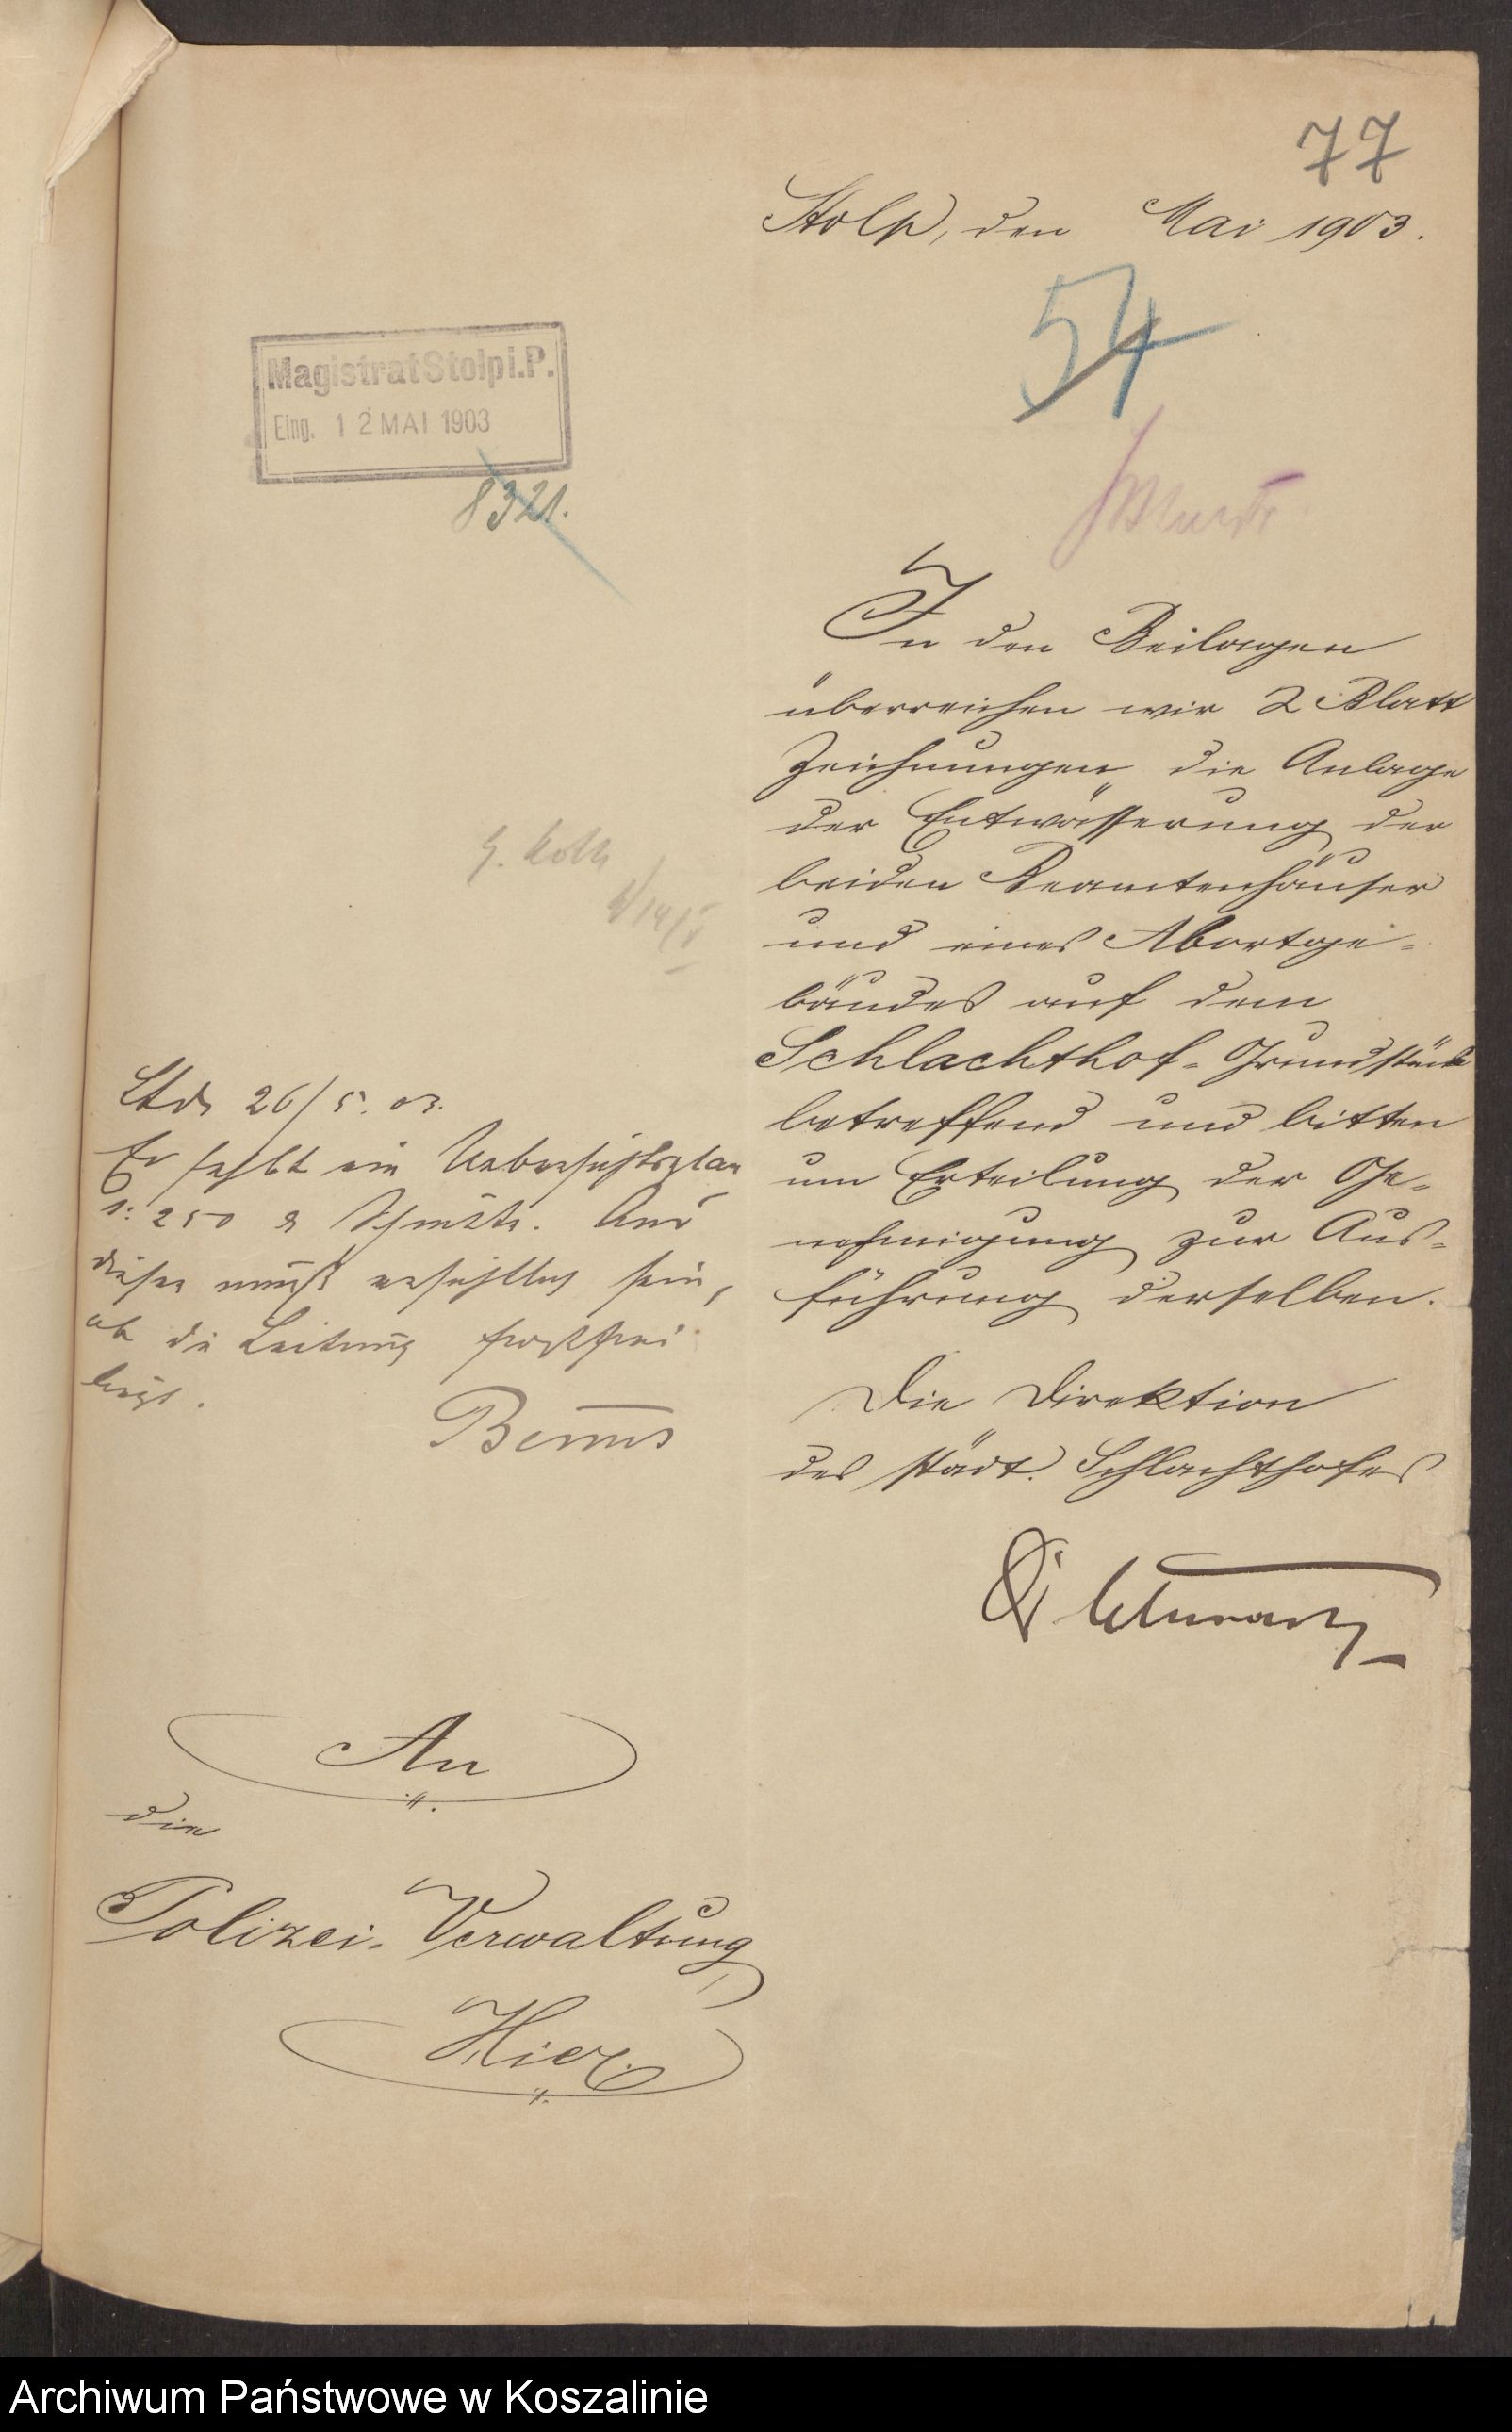 77
Stolp, den Mai 1903.
54
Magistrat Stolp i. P.
Eing. 12 MAI 1903
8321.
In den Beilagen
überreichen wir 2 Blatt
Zeichnungen, die Anlage
der Entwässerung der
beiden Beamtenhäuser
und eines Abortge-
bäudes auf dem
Schlachthof-Grundstück
betreffend und bitten
um Erteilung der Ge-
nehmigung zur Aus-
führung derselben.
Die Direktion
des städt. Schlachthofes
Schwarz
14/5
26/5.03.
Es fehlt ein Uebersichtsplan
1:250 Aus
dieser muß ersichtlich sein,
ob die Leitung frostfrei
liegt.
An
die
Polizei-Verwaltung
Hier.
Archiwum Państwowe w Koszalinie